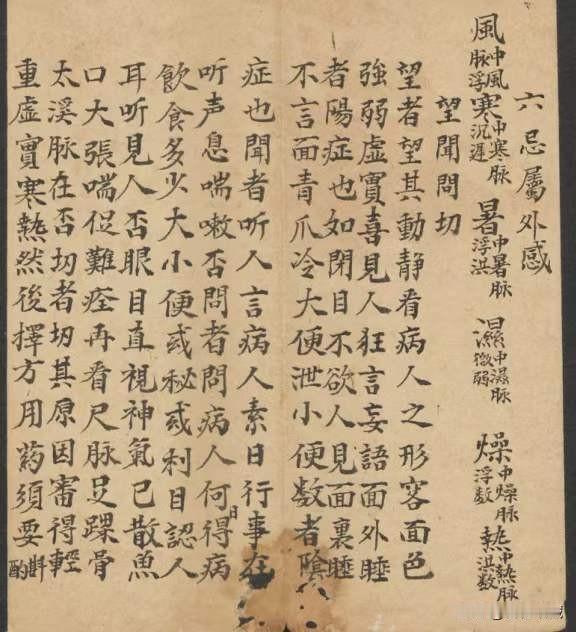 六忌屬外感
風中風脉浮寒中寒脉沉遲暑中暑脉浮洪濕中濕脉微弱燥中燥脉浮数熱中熱脉洪数
望聞問切
望者望其動静看病人之形容面色
強弱虚實喜見人狂言妄語面外睡
者陽症也如閉目不欲人見面裏睡
不言面青爪冷大便泄小便数者陰
症也聞者听人言病人素日行事在
听声息喘嗽否問者問病人何日得病
飲食多少大小便或秘或利目認人
耳听見人否眼目直視神氣已散魚
口大張喘促難痊再看尺脉足踝骨
太溪脉在否切者切其原因審得輕
重虚實寒熱然後擇方用药須要斟酌